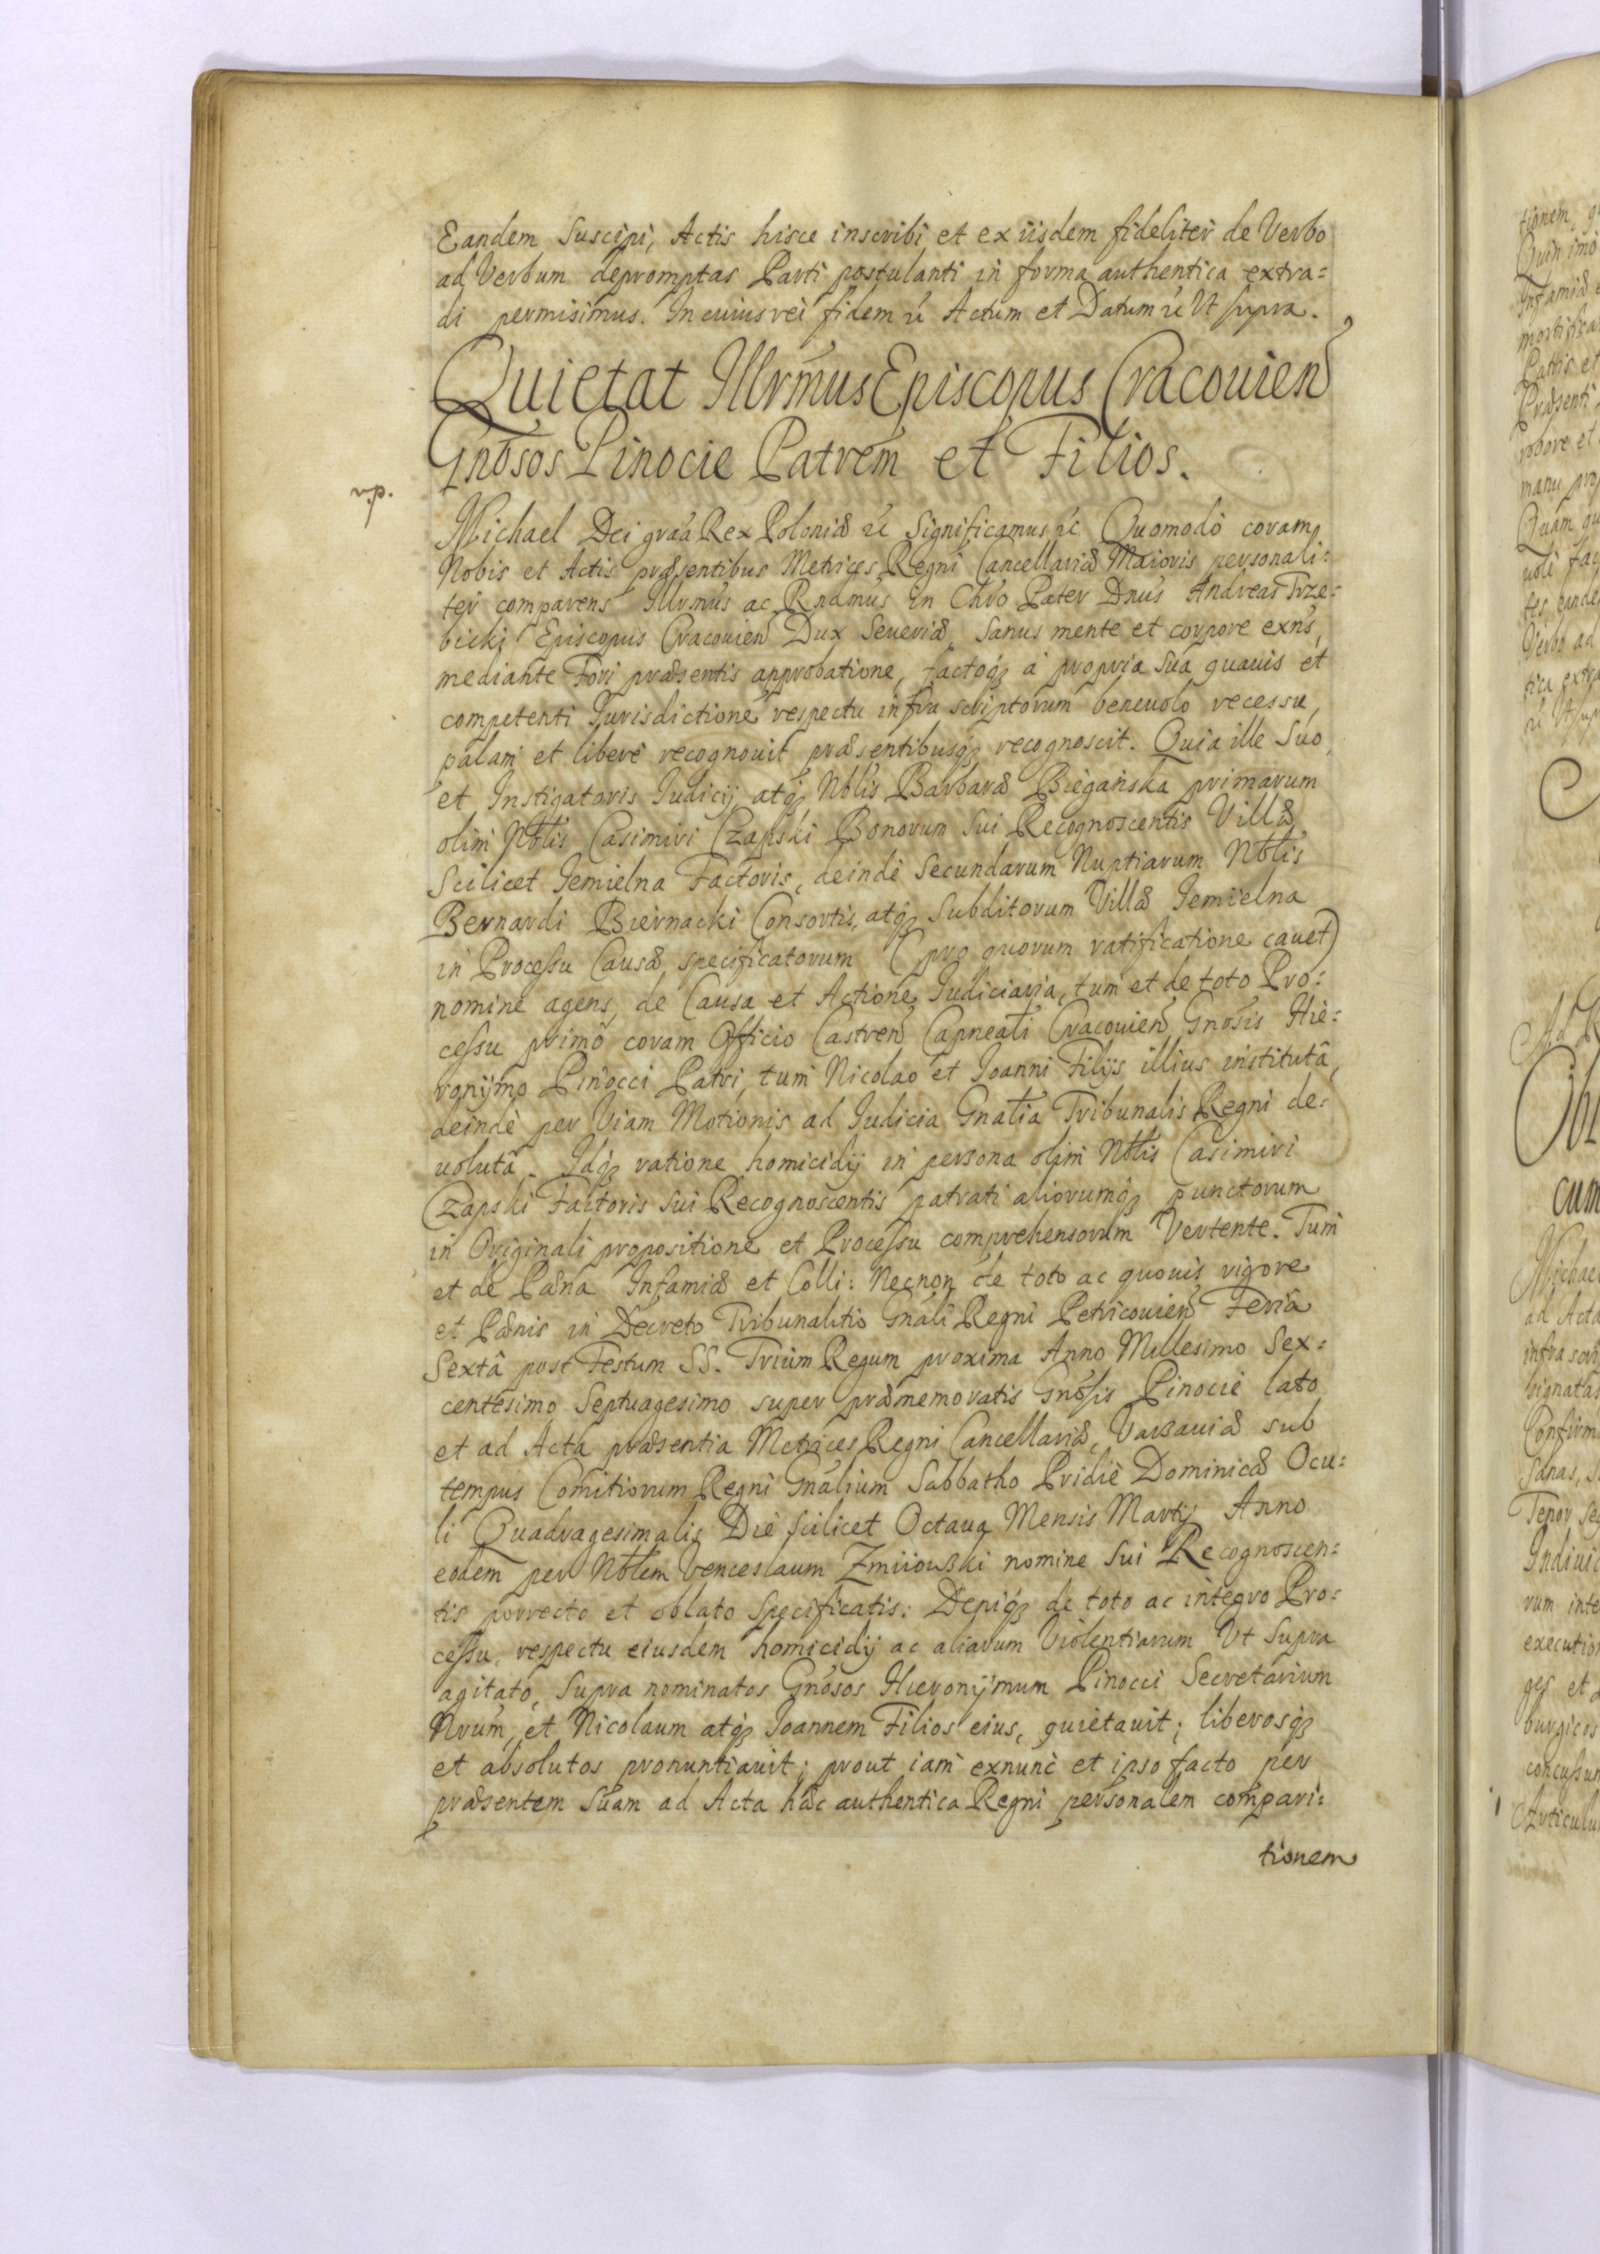 Eandem Suscipi, Actis hisce inscribi et ex iisdem fideliter de Verbo
ad Verbum depromptas Parti postulanti in forma authentica extra=
di permisimus. In cuius rei fidem &c Actum et Datum &c Vt supra.
Quietat Illrmus Episcopus Cracouien
Gnosos Pinocie Patrem et Filios.
Michael Dei graa Rex Poloniæ &c Significamus &c Quomodo coram
Nobis et Actis præsentibus Metrices Regni Cancellariæ Maioris personali=
ter comparens Illrmus ac Rndmus in Chro Pater Dnus Andreas Trze=
bicki Episcopus Cracouien Dux Seueriæ, Sanus mente et corpore exns,
mediante Fori præsentis approbatione, factoq3 à propria sua quauis et
competenti Jurisdictione respectu infra scriptorum beneuolo recessu,
palam et liberè recognouit præsentibusq3 recognoscit. Quia ille Suo,
et Instigatoris Judicij, atq3 Nblis Barbaræ Biegańska primarum
olim Nblis Casimiri Czapski Bonorum Sui Recognoscentis Villæ
Scilicet Jemielna Factoris, deindè Secundarum Nuptiarum Nblis
Bernardi Biernacki Consortis, atq3 Subditorum Villæ Jemielna
in Processu Causæ specificatorum (pro quorum ratificatione cauet)
nomine agens, de Causa et Actione Judiciaria, tum et de toto Pro=
cessu primò coram Officio Castren Capneali Cracouien Gnosis Hie=
ronijmo Pinocci Patri, tum Nicolao et Joanni Filijs illius institutâ,
deindè per Viam Motionis ad Judicia Gnalia Tribunalis Regni de=
uolutâ. Idq3 ratione homicidij in persona olim Nblis Casimiri
Czapski Factoris sui Recognoscentis patrati aliorumq3 punctorum
in Originali propositione et Processu comprehensorum Vertente. Tum
et de Pæna Infamiæ et Colli: Necnon de toto ac quouis vigore
et Pænis in Decreto Tribunalitio Gnali Regni Petricouien Feriâ
Sextâ post Festum SS. Trium Regum proxima Anno Millesimo Sex=
centesimo Septuagesimo super præmemoratis Gnosis Pinocie lato
et ad Acta præsentia Metrices Regni Cancellariæ, Varsauiæ sub
tempus Comitiorum Regni Gnalium Sabbatho Pridiè Dominicæ Ocu=
li Quadragesimalis Die scilicet Octaua Mensis Martij Anno
eodem per Nblem Venceslaum Zmiiowski nomine Sui Recognoscen=
tis porrecto et oblato Specificatis: Deniq3 de toto ac integro Pro=
cessu, respectu eiusdem homicidij ac aliarum Violentiarum Vt Supra
agitato, Supra nominatos Gnosos Hieronijmum Pinocci Secretarium
Nrum, et Nicolaum atq3 Joannem Filios eius, quietauit; liberosq3
et absolutos pronuntiauit; prout iam exnunc et ipso facto per
præsentem Suam ad Acta hæc authentica Regni personalem compari=
tionem